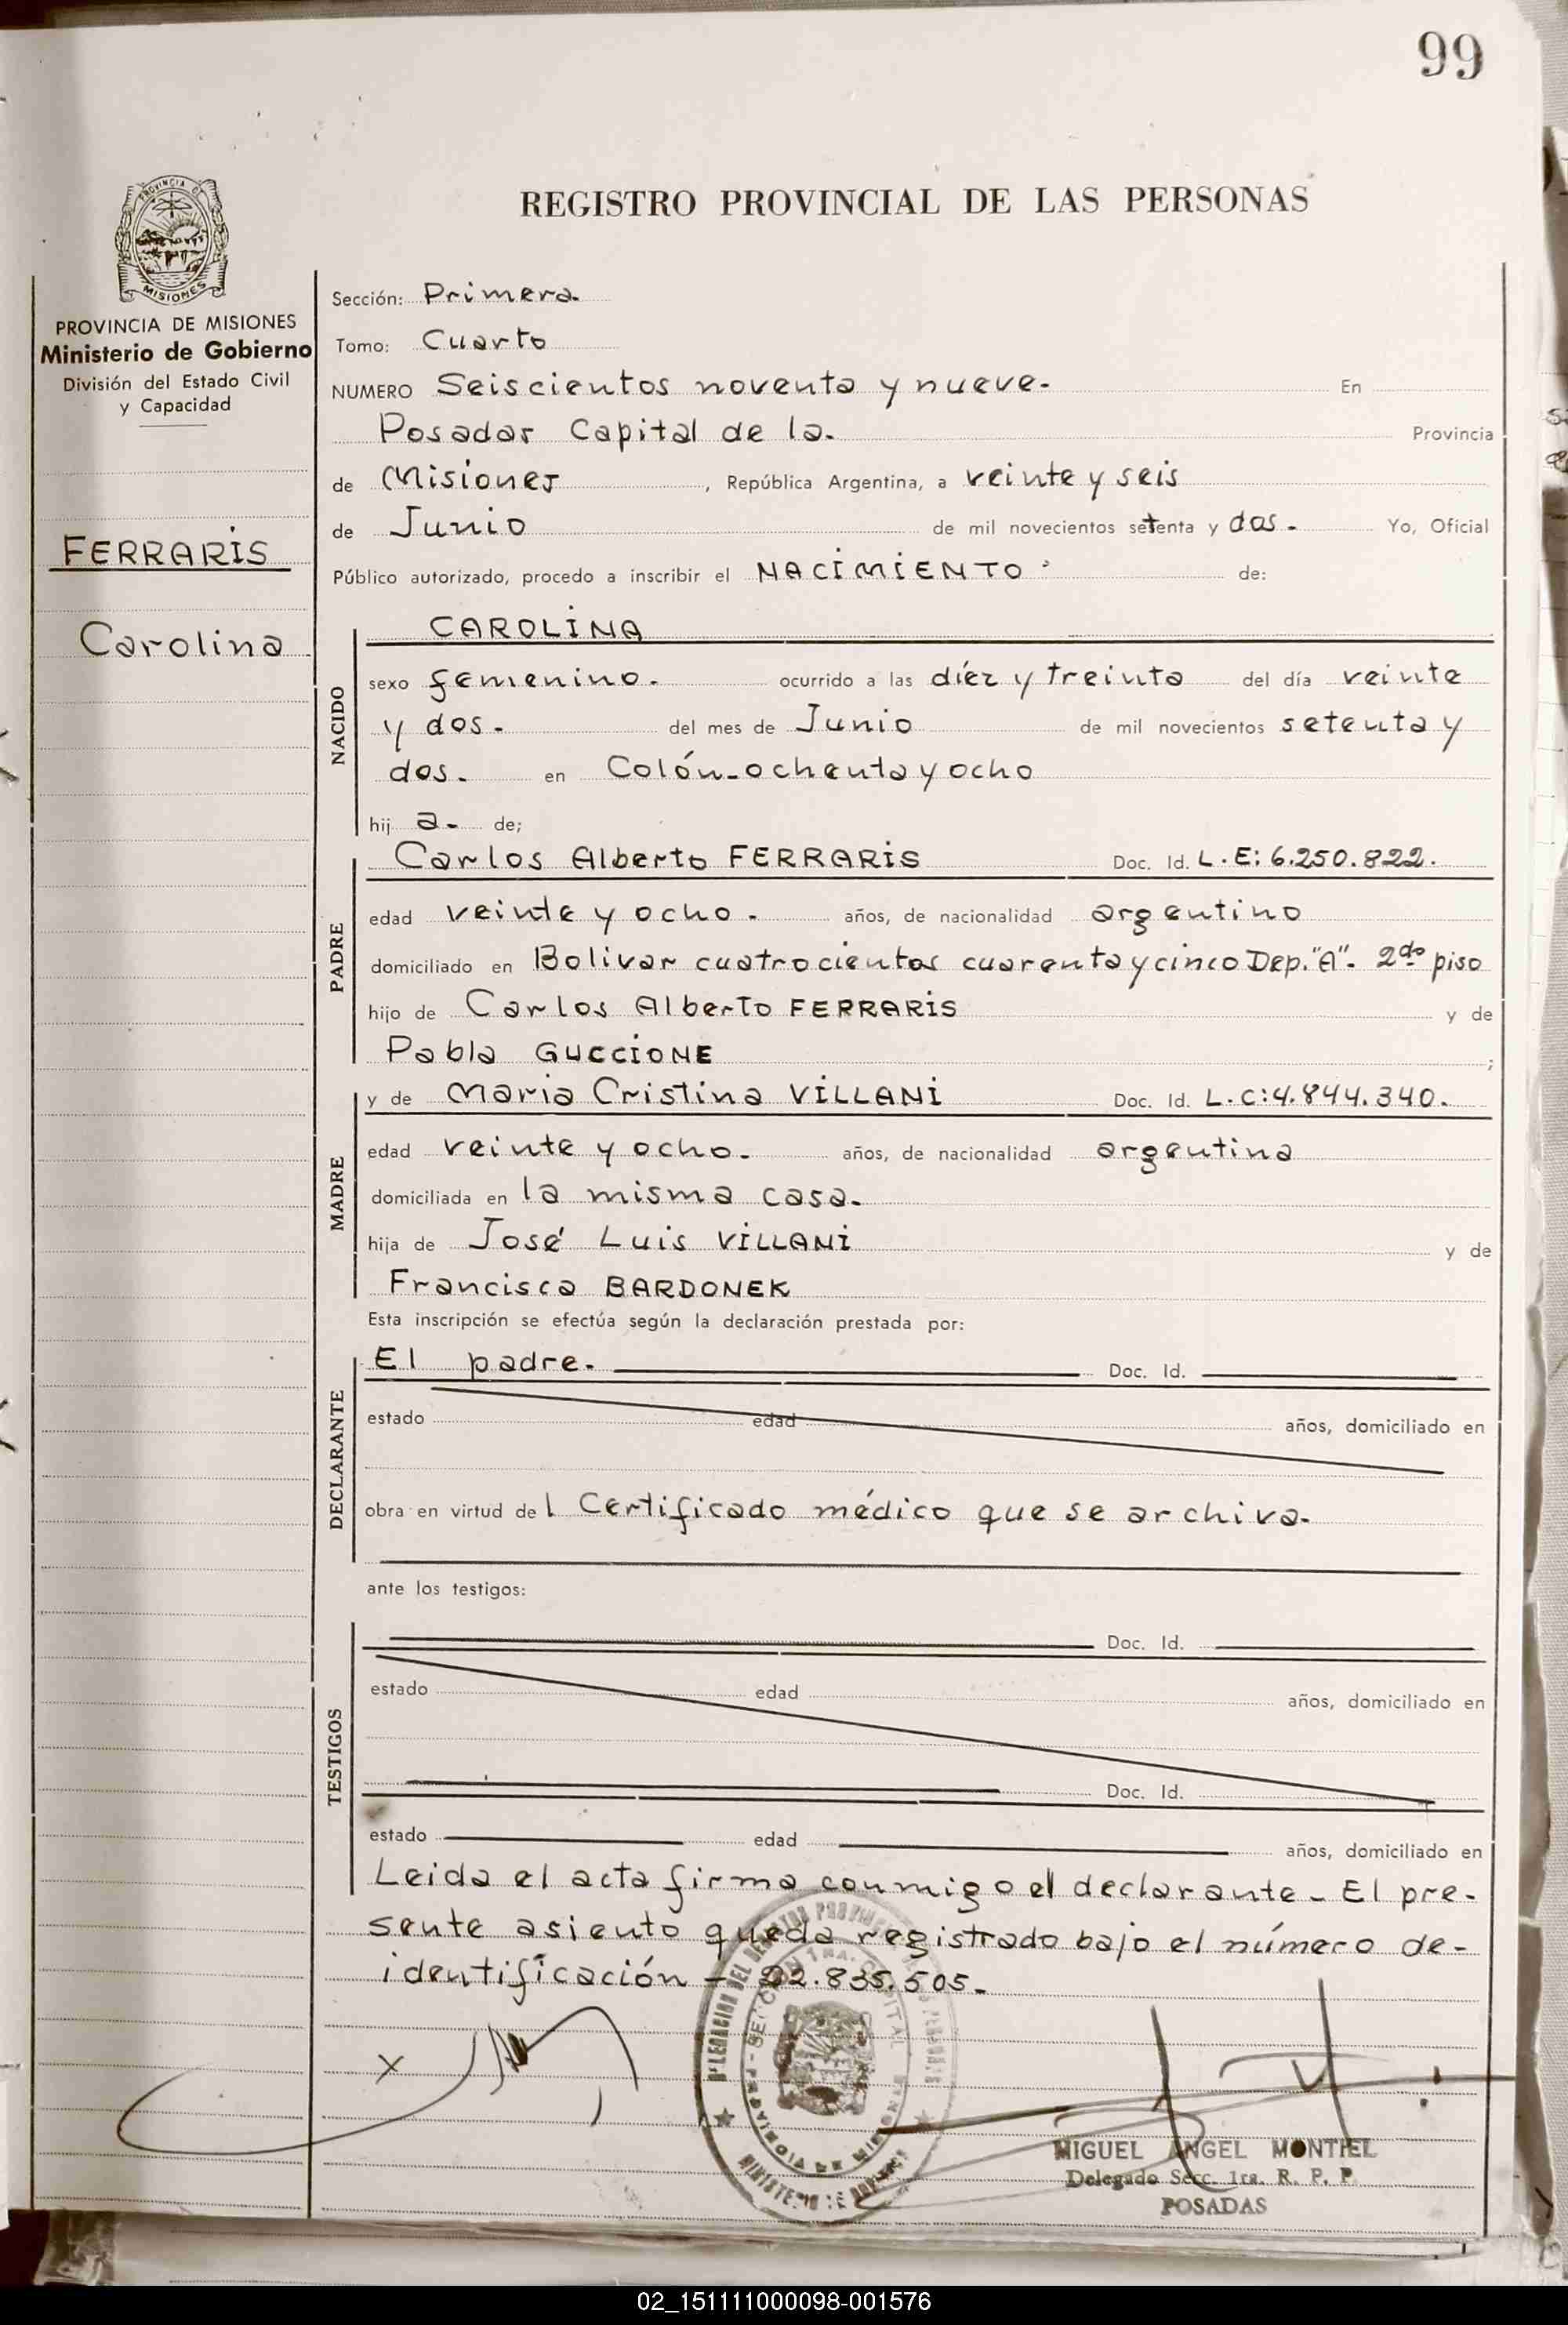 99
REGISTRO PROVINCIAL DE LAS PERSONAS
PROVINCIA DE MISIONES
Ministerio de Gobierno
División del Estado Civil
y Capacidad
FERRARIS
Carolina
Sección: Primera.
Tomo: Cuarto
NUMERO Seiscientos noventa y nueve. En
Posadas Capital de la. Provincia
de Misiones, República Argentina, a veinte y seis
de Junio de mil novecientos setenta y dos. Yo, Oficial
Público autorizado, procedo a inscribir el NACIMIENTO de:
NACIDO
CAROLINA
sexo femenino. ocurrido a las diéz y treinta del día veinte
y dos. del mes de Junio de mil novecientos setenta y
dos. en Colón-ochenta y ocho
hij a. de;
PADRE
Carlos Alberto FERRARIS Doc. Id. L.E: 6.250.822.
edad veinte y ocho. años, de nacionalidad argentino
domiciliado en Bolivar cuatrocientos cuarenta y cinco Dep."A". 2do piso
hijo de Carlos Alberto FERRARIS y de
Pabla GUCCIONE ;
MADRE
y de Maria Cristina VILLANI Doc. Id. L.C: 4.844.340.
edad veinte y ocho. años, de nacionalidad argentina
domiciliada en la misma casa.
hija de José Luis VILLANI y de
Francisca BARDONEK
Esta inscripción se efectúa según la declaración prestada por:
DECLARANTE
El padre. Doc. Id.
estado edad años, domiciliado en
obra en virtud del Certificado médico que se archiva.
ante los testigos:
TESTIGOS
Doc. Id.
estado edad años, domiciliado en
Doc. Id.
estado edad años, domiciliado en
Leida el acta firma conmigo el declarante. El pre-
sente asiento queda registrado bajo el número de-
identificación - 22.835.505.
x
MIGUEL ANGEL MONTIEL
Delegado Secc. 1ra. R. P. P.
POSADAS
02_151111000098-001576